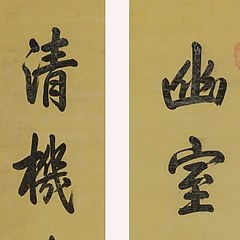 幽室
清機